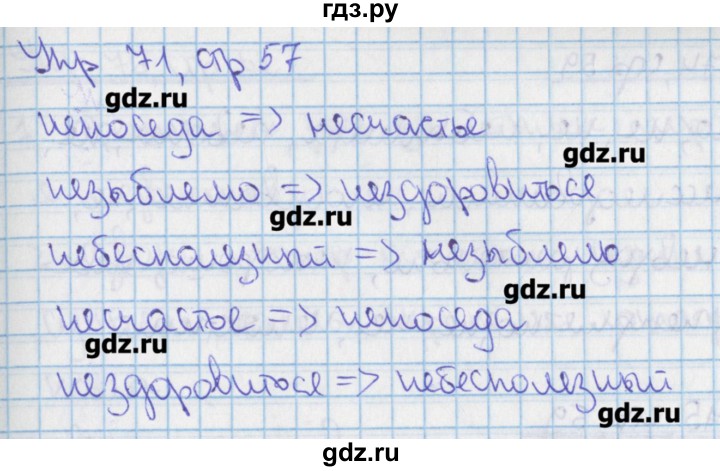 гдз.ру
Упр 71, стр 57
gdz.ru
непоседа => несчастье
gdz.ru
незыблемо => нездоровиться
gdz.ru
небесполезный => незыблемо
gdz.ru
несчастье => непоседа
gdz.ru
нездоровиться => небесполезный
gdz.ru
gdz.ru